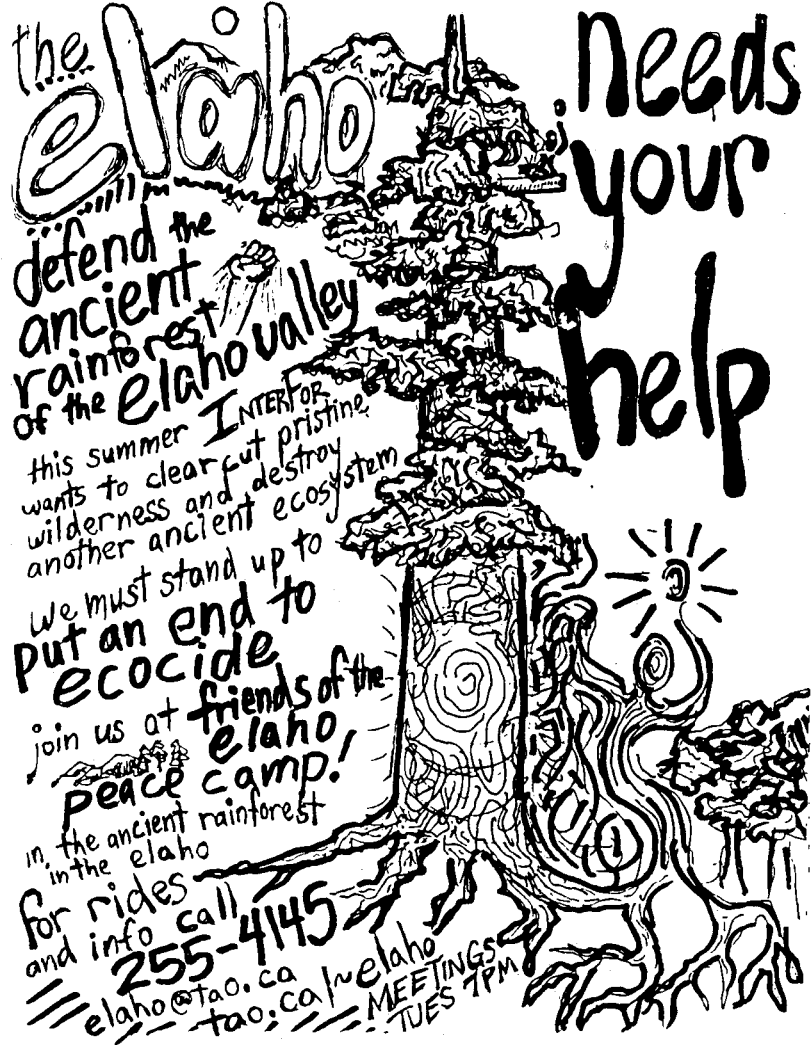 the
elaho
needs
your
help
defend the
ancient
rainforest
of the elaho valley
this summer INTERFOR
wants to clearcut pristine
wilderness and destroy
another ancient ecosystem
we must stand up to
put an end to
ecocide
join us at friends of the
elaho
peace camp!
in the ancient rainforest
in the elaho
for rides
and info call
255-4145
elaho@tao.ca
tao.ca/~elaho
MEETINGS
TUES 7PM